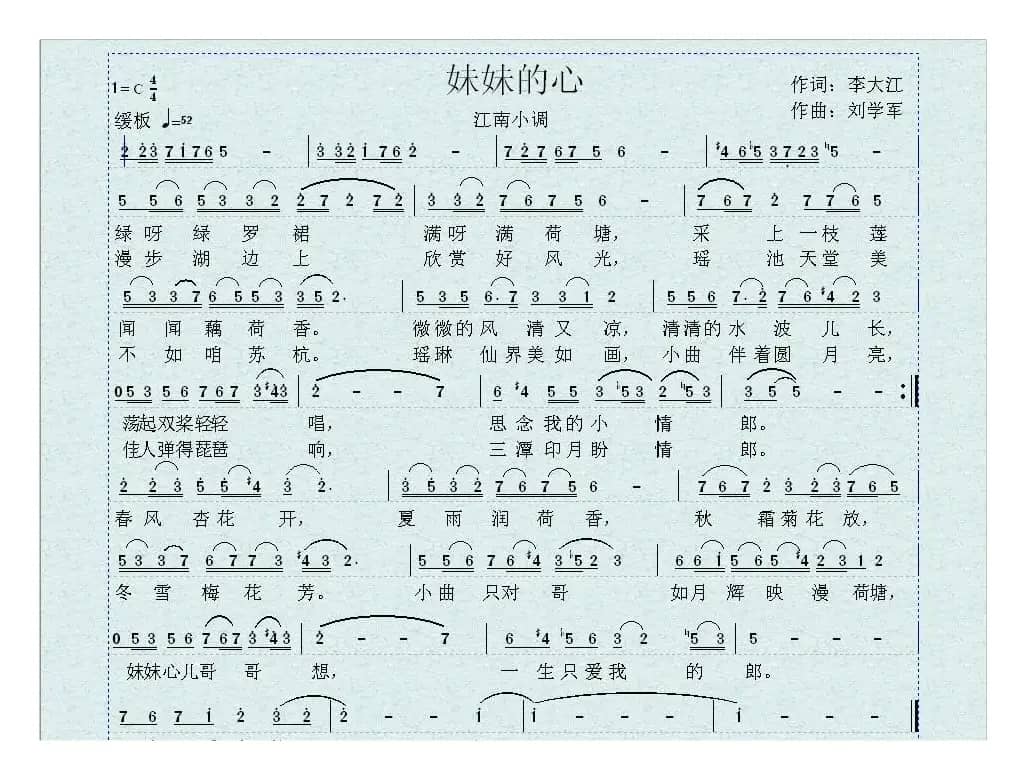 妹妹的心
1=C 4/4
作词：李大江
缓板 ♩=52
江南小调
作曲：刘学军
2 23 7176 5 - | 3 332 176 2 - | 7 27 67 5 6 - | #4 6♮5 3723 ♮5 -
5 56 53 32 27 2 72 | 3 332 76 75 6 - | 767 2 776 5
绿呀 绿罗裙 满呀 满荷塘， 采 上一枝莲
漫步 湖边上 欣赏 好风光， 瑶 池天堂美
5 3 37 6553 352. | 535 6.7 331 2 | 556 7.2 76#42 3
闻 闻藕荷香。 微微的风 清又凉， 清清的水 波儿长，
不 如咱苏杭。 瑶琳 仙界美如画， 小曲 伴着圆月亮，
053 56 767 3#43 | 2 - - 7 | 6 #4 55 3♮53 2♮53 | 3 55 - - :|
荡起双桨轻轻 唱， 思念我的小情郎。
佳人弹得琵琶 响， 三潭印月盼情郎。
2 23 55#4 3 2. | 3532 7675 6 - | 767 23 23 765
春风 杏花开， 夏雨润荷香， 秋 霜菊花放，
53 37 6773 #432. | 556 76#4 3♮52 3 | 661 565 #4231 2
冬雪 梅花芳。 小曲 只对哥 如月辉映漫荷塘，
053 56 767 3#43 | 2 - - 7 | 6 #4 ♮56 32 ♮53 | 5 - - -
妹妹心儿哥哥 想， 一生只爱我的郎。
76 71 2 32 | 2 - - 1 | 1 - - - | 1 - - -